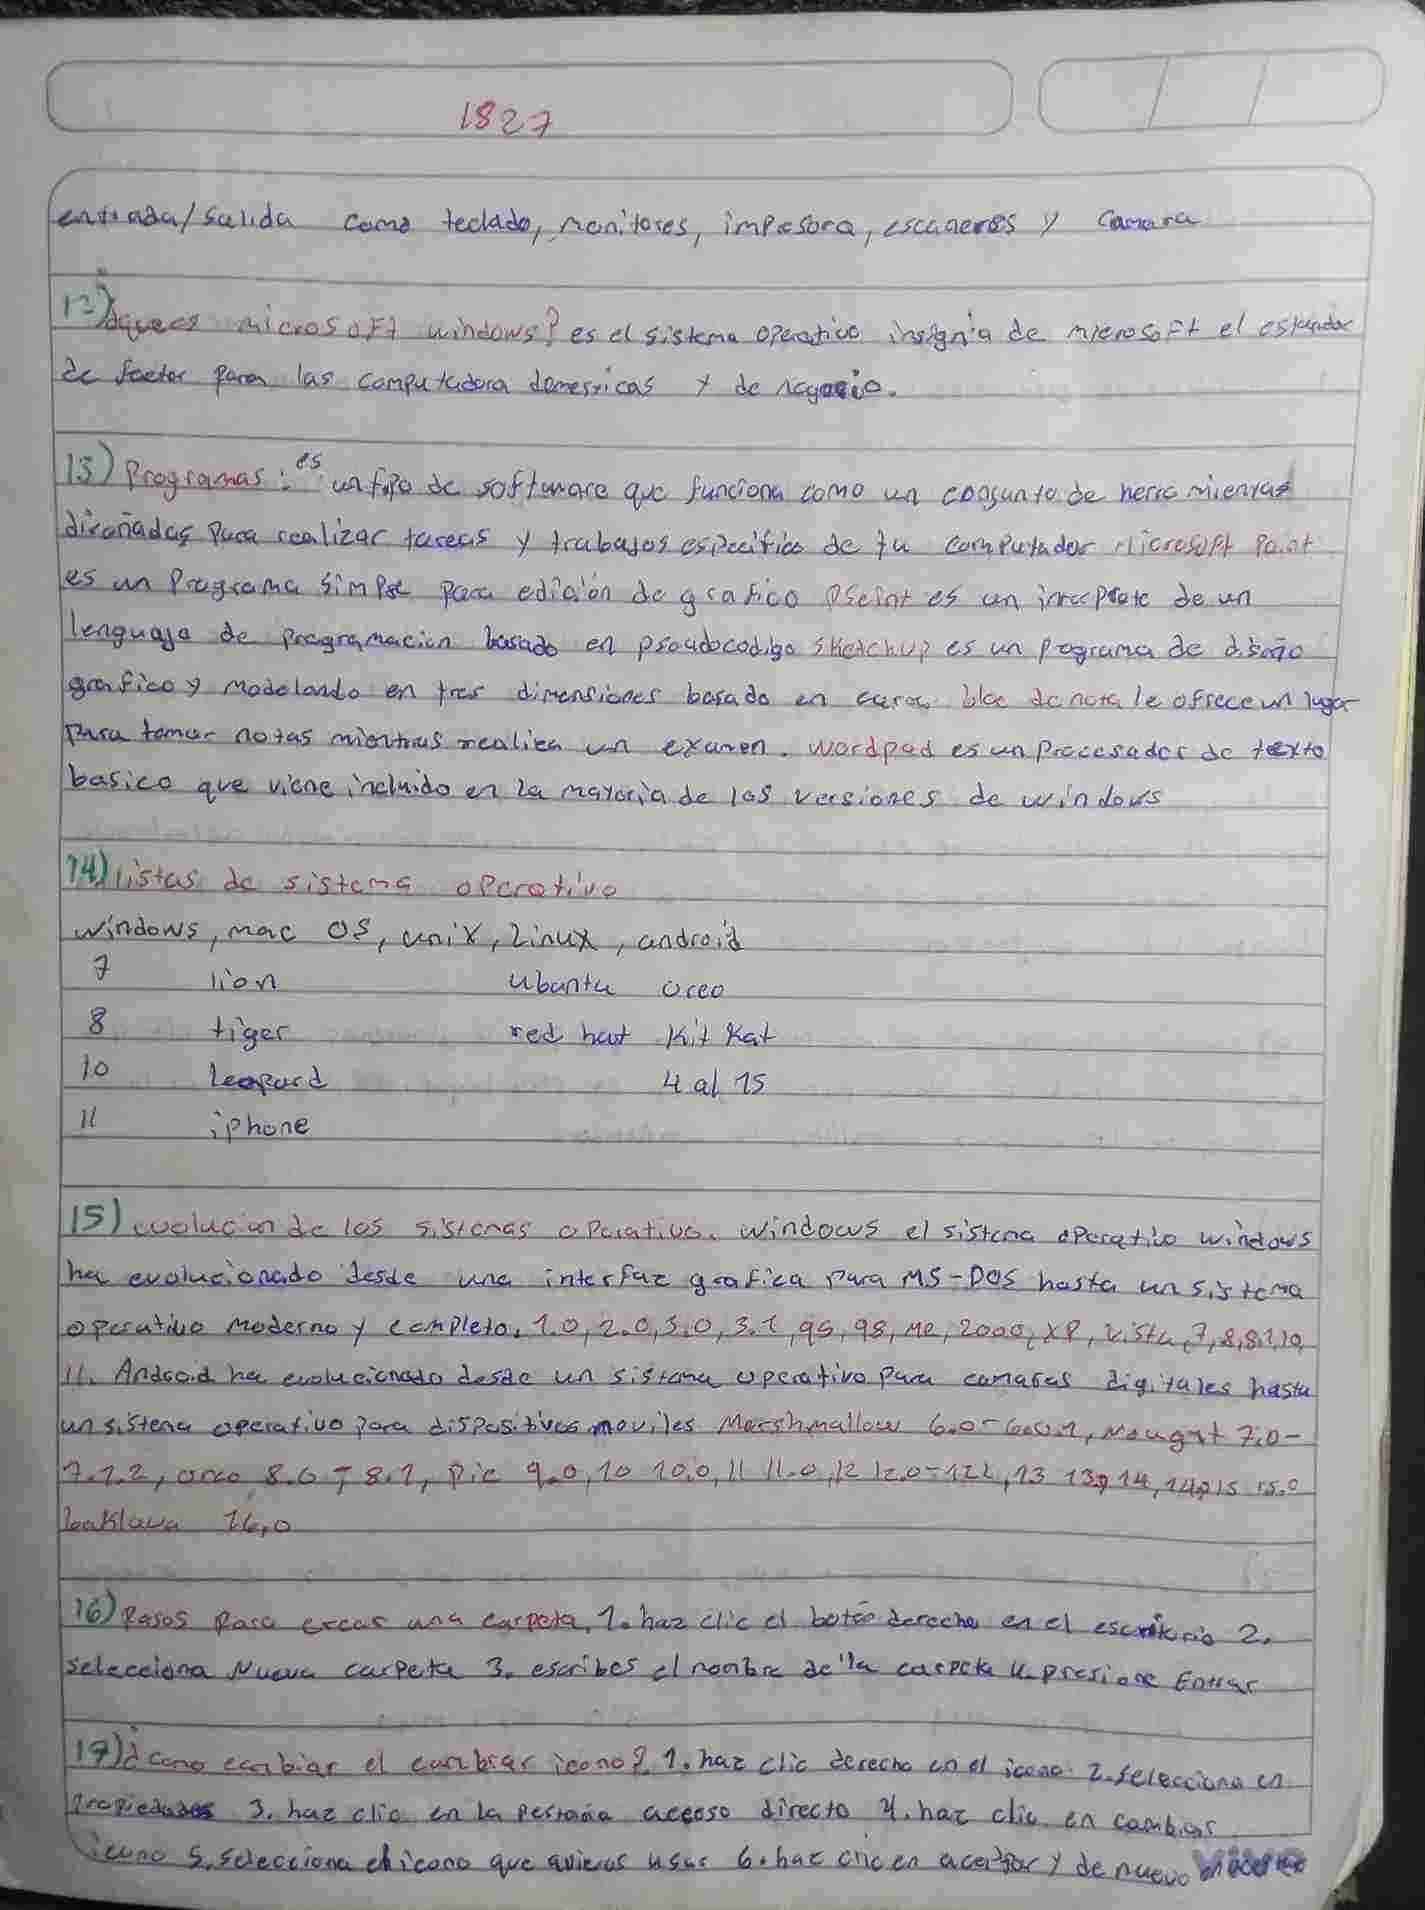 1827
entrada/salida como teclado, monitores, impresora, escaneres y camara
12) ¿que es microsoft windows? es el sistema operativo insignia de microsoft el estandar
de factor para las computadora domesricas y de negocio.
13) Programas: es un tipo de software que funciona como un conjunto de herramientas
diseñadas para realizar tareas y trabajos especifico de tu computador Microsoft Paint
es un Programa simple para edición de grafico PSeint es un interprete de un
lenguaje de programacion basado en pseudocodigo sketchup es un programa de diseño
grafico y modelando en tres dimensiones basado en caras bloc de nota le ofrece un lugar
para tomar notas mientras realiza un examen. Wordpad es un procesador de texto
basico que viene incluido en la mayoria de las versiones de windows
14) listas de sistema operativo
windows, mac OS, unix, Linux, android
7 lion ubuntu oreo
8 tiger red hat Kit Kat
10 leopard 4 al 15
11 iphone
15) evolucion de los sistemas operativo. windows el sistema operativo windows
ha evolucionado desde una interfaz grafica para MS-DOS hasta un sistema
operativo moderno y completo. 1.0, 2.0, 3.0, 3.1, 95, 98, Me, 2000, XP, vista, 7, 8, 8.1, 10,
11. Android ha evolucionado desde un sistema operativo para camaras digitales hasta
un sistema operativo para dispositivos moviles Marshmallow 6.0 - 6.0.1, Nougat 7.0 -
7.1.2, oreo 8.0 - 8.1, Pie 9.0, 10 10.0, 11 11.0, 12 12.0 - 12L, 13 13, 14, 14, 15 15.0
baklava 16,0
16) Pasos para crear una carpeta. 1. haz clic el botón derecho en el escritorio 2.
selecciona Nueva carpeta 3. escribes el nombre de la carpeta 4. presione Entrar
17) ¿como cambiar el cambiar icono? 1. haz clic derecho en el icono 2. selecciona en
propiedades 3. haz clic en la pestaña acceso directo 4. haz clic en cambiar
icono 5. selecciona el icono que quieras usar 6. haz clic en aceptar y de nuevo en aceptar